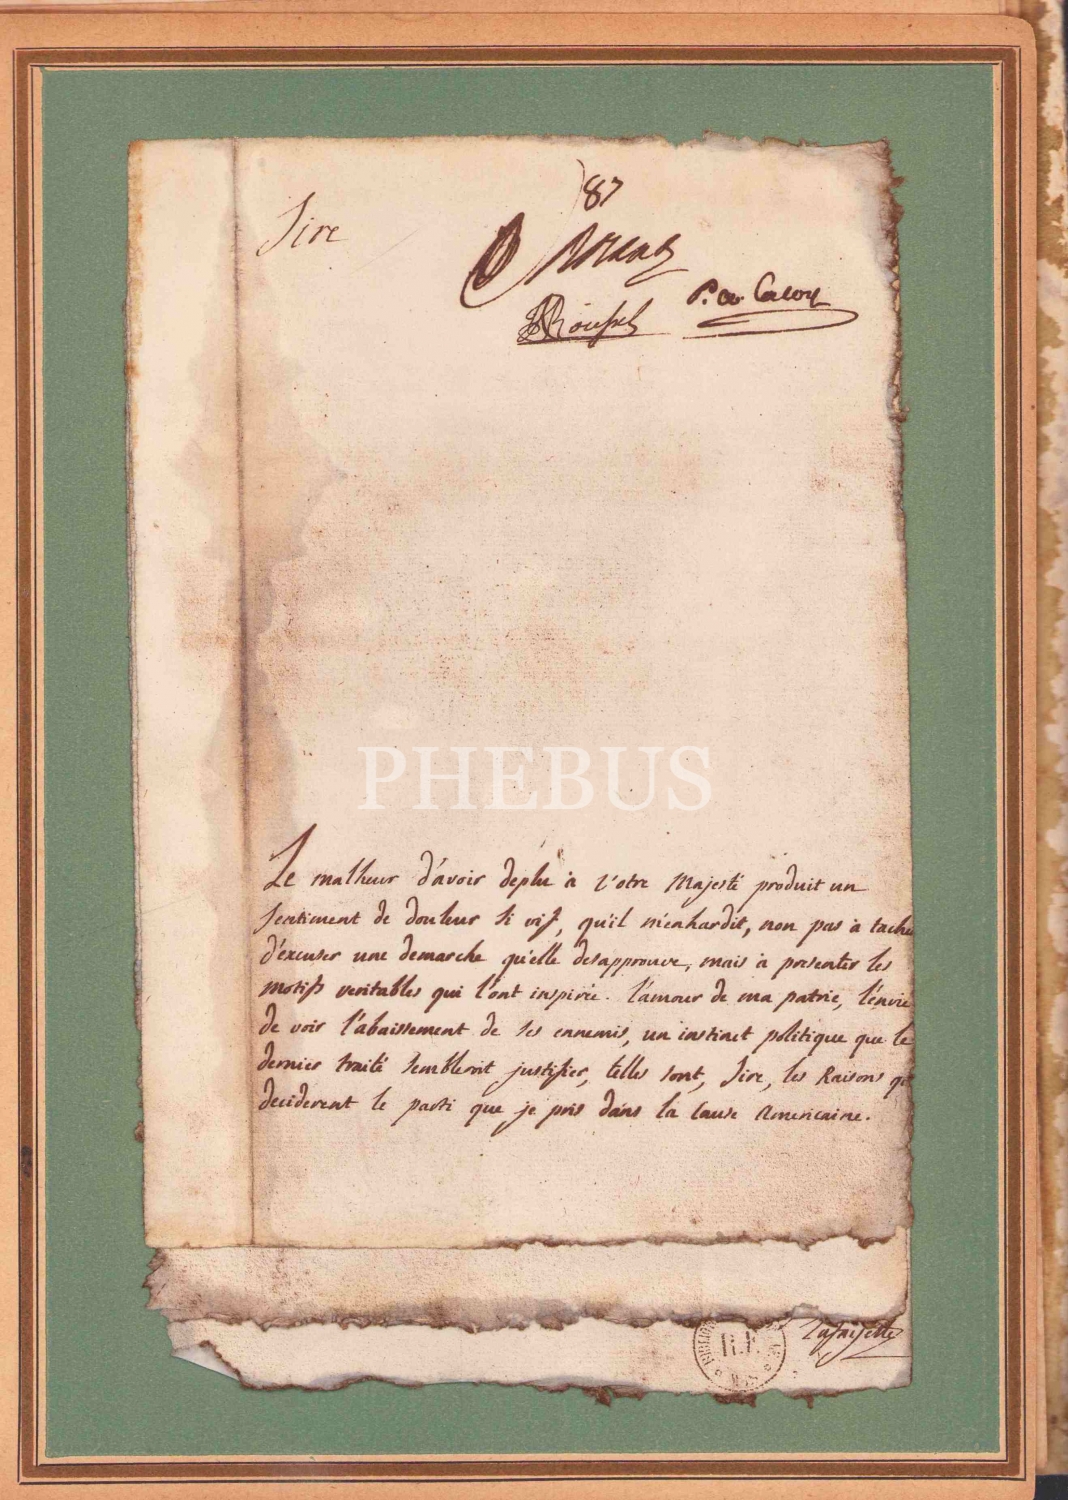 87
Sire
PHEBUS
Le malheur d'avoir deplu à Votre Majesté produit un
sentiment de douleur si vif, qu'il m'enhardit, non pas à tacher
d'excuser une demarche qu'elle desapprouve, mais à presenter les
motifs veritables qui l'ont inspirée. l'amour de ma patrie, l'envie
de voir l'abaissement de ses ennemis, un instinct politique que le
dernier traité sembleroit justifier, telles sont, Sire, les Raisons qui
deciderent le parti que je pris dans la Cause Americaine.
R.F.
Lafayette